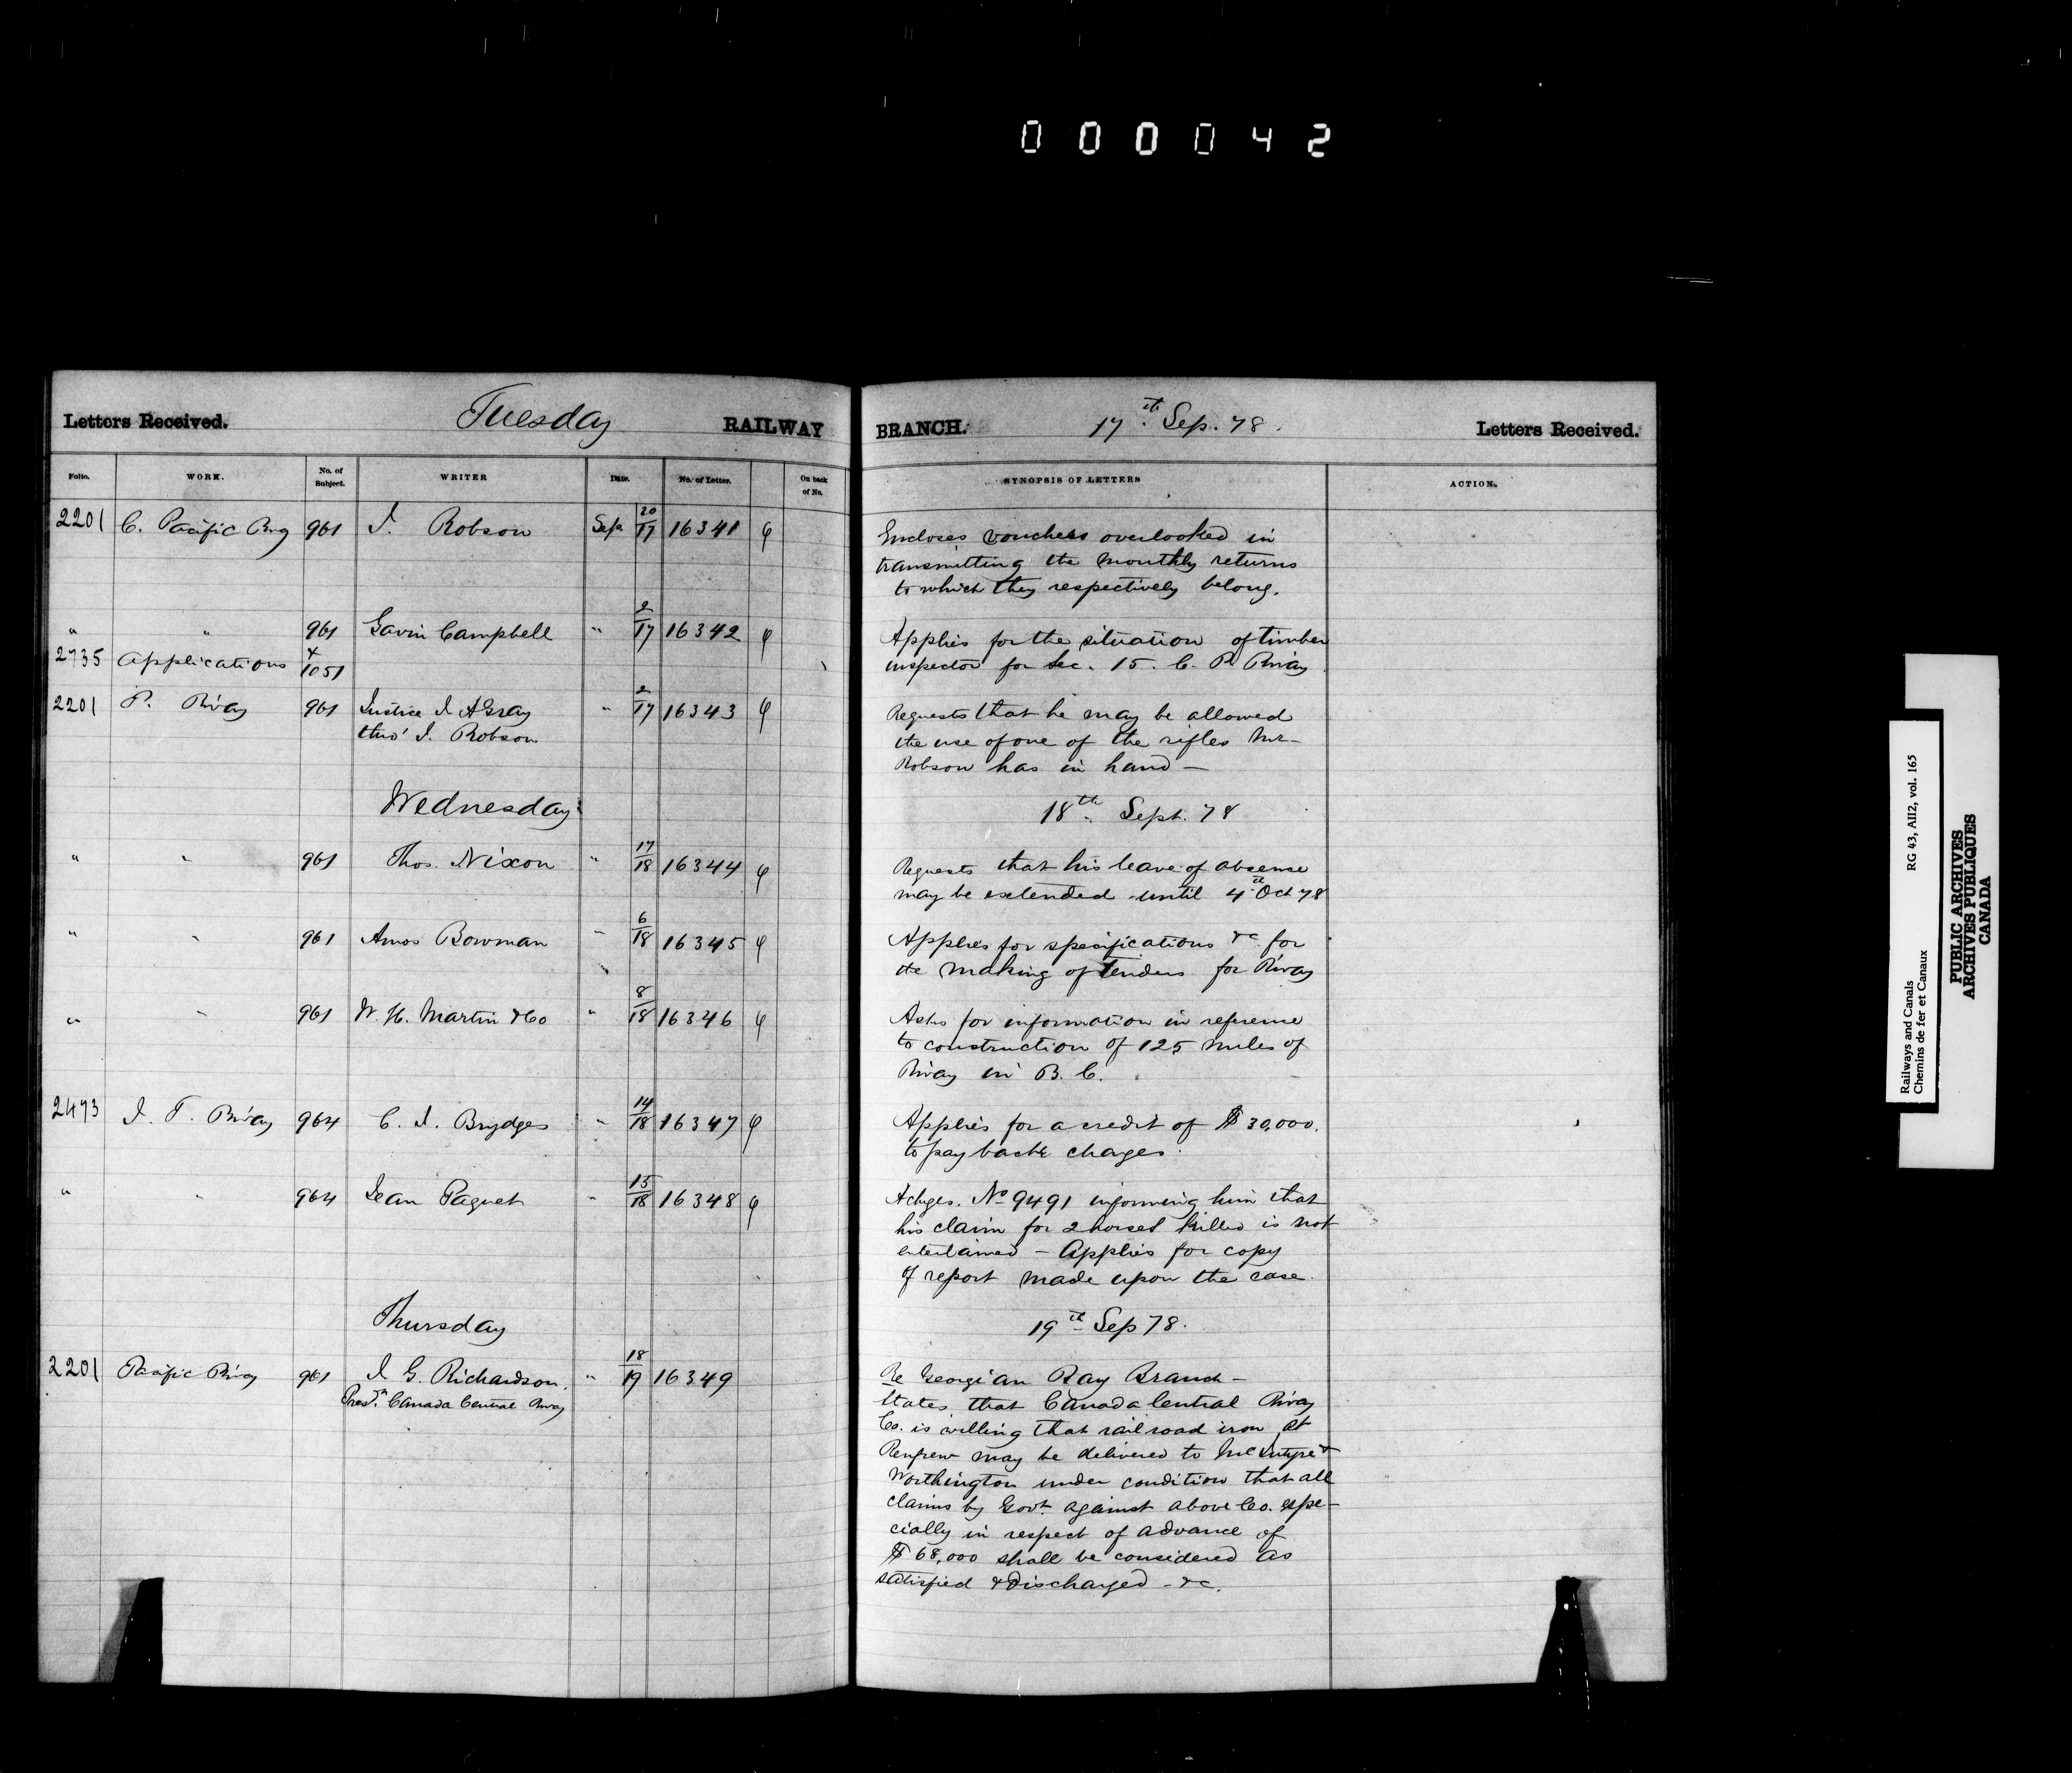 000042
Letters Received. Tuesday RAILWAY BRANCH. 17th Sep. 78. Letters Received.
Folio. WORK. No. of Subject. WRITER Date. No. of Letter. On back of No. SYNOPSIS OF LETTERS ACTION.
2201 C. Pacific Rwy 961 J. Robson Sep. 20/17 16341 φ Encloses vouchers overlooked in
transmitting the monthly returns
to which they respectively belong.
" " 961 Gavin Campbell " 2/17 16342 φ Applies for the situation of timber
2735 Applications & 1051 inspector for Sec. 15. C. P. R'way
2201 P. R'way 961 Justice J. H Gray " 2/17 16343 φ Requests that he may be allowed
thro' J. Robson the use of one of the rifles Mr-
Robson has in hand —
Wednesday 18th Sept. 78
" " 961 Thos. Nixon " 17/18 16344 φ Requests that his leave of absense
may be extended until 4th Oct 78
" " 961 Amos Bowman " 6/18 16345 φ Applies for specifications &c for
the making of tenders for R'way
" " 961 W. H. Martin & Co " 8/18 16346 φ Asks for information in reference
to construction of 125 miles of
R'way in B. C.
2473 I. T. R'way 964 C. J. Brydges " 14/18 16347 φ Applies for a credit of $30,000.
to pay back charges.
" " 964 Jean Paquet " 15/18 16348 φ Aclges. No 9491 informing him that
his claim for 2 horses killed is not
entertained — Applies for copy
of report made upon the case.
Thursday 19th Sep 78.
2201 Pacific R'way 961 J G. Richardson, " 18/19 16349 Re Georgian Bay Branch —
Presdt. Canada Central Rway States that Canada Central R'way
Co. is willing that railroad iron at
Renfrew may be delivered to McIntyre &
Worthington under condition that all
claims by Govt. against above Co. espe-
cially in respect of advance of
$68,000 shall be considered as
satisfied & discharged - &c.
Railways and Canals RG 43, AII2, vol. 165
Chemins de fer et Canaux
PUBLIC ARCHIVES
ARCHIVES PUBLIQUES
CANADA